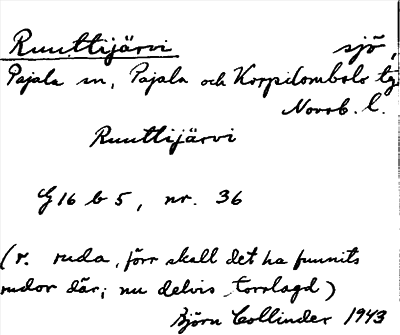 Ruuttijärvi sjö,
Pajala sn, Pajala och Korpilombolo tg
Norrb. l.
Ruuttijärvi
G16 b 5, nr. 36
(r. ruda, förr skall det ha funnits
rudor där; nu delvis torrlagd)
Björn Collinder 1943